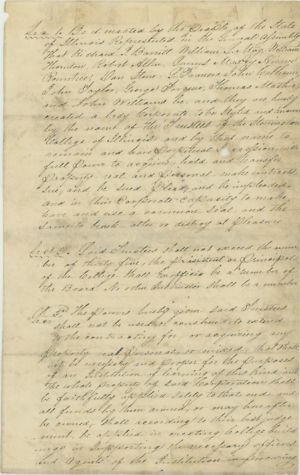 Sec 1. Be it enacted by the People of the State
of Illinois Represented in the General Assembly
That Richard J. Barrett William L. May William
Thornton, Robert Allen, James
John Taylor, George Thomas Mather
and John Williams be and they are hereby
created a body Corporate to be styled and known
by the name of the Trustees of the
College of Illinois and by that name to
remain and have perpetual succession with
full Power to acquire, hold and transfer
property real and Personal make contracts
sue, and be sued, plead, and be impleaded
and in their Corporate Capacity to make
have and use a common seal and the
same to break alter or destroy at pleasure
Sec 2. Said Trustees shall not exceed the num
ber of thirty five, the president or principal
of the College shall be a member of
the Board No other Instructor shall be a member
Sec 3. The powers hereby given Said Trustees
shall not be used or construed to extend
to the contracting for, or acquiring any
property real Personal or mixed, that shall
not be necessary and proper for the purposes
of an Institution of learning of this kind and
the whole property of said Corporation shall
be faithfully applied solely to that end and
all funds by them owned, or may hereafter
be owned, shall according to their best judge
ment, be applied in erecting suitable build
ings in supporting the necessary officers
and agents of the Institution improving